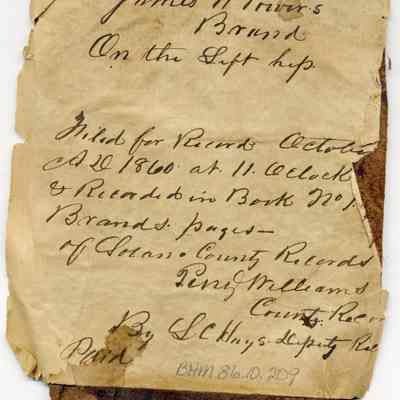 James N Towers
Brand
On the Left hip
Filed for Record Octob
A.D 1860 at 11. OClock
& Recorded in Book No 1.
Brands. pages—
of Solano County Records
Perry Williams
County Recor
By L C Hays Deputy Rec
Paid
BHM 86.10.209